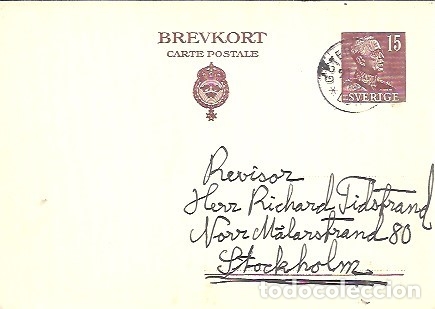 BREVKORT
CARTE POSTALE
15
SVERIGE
Revisor
Herr Richard Tidstrand
Norr Mälarstrand 80
Stockholm
todocoleccion